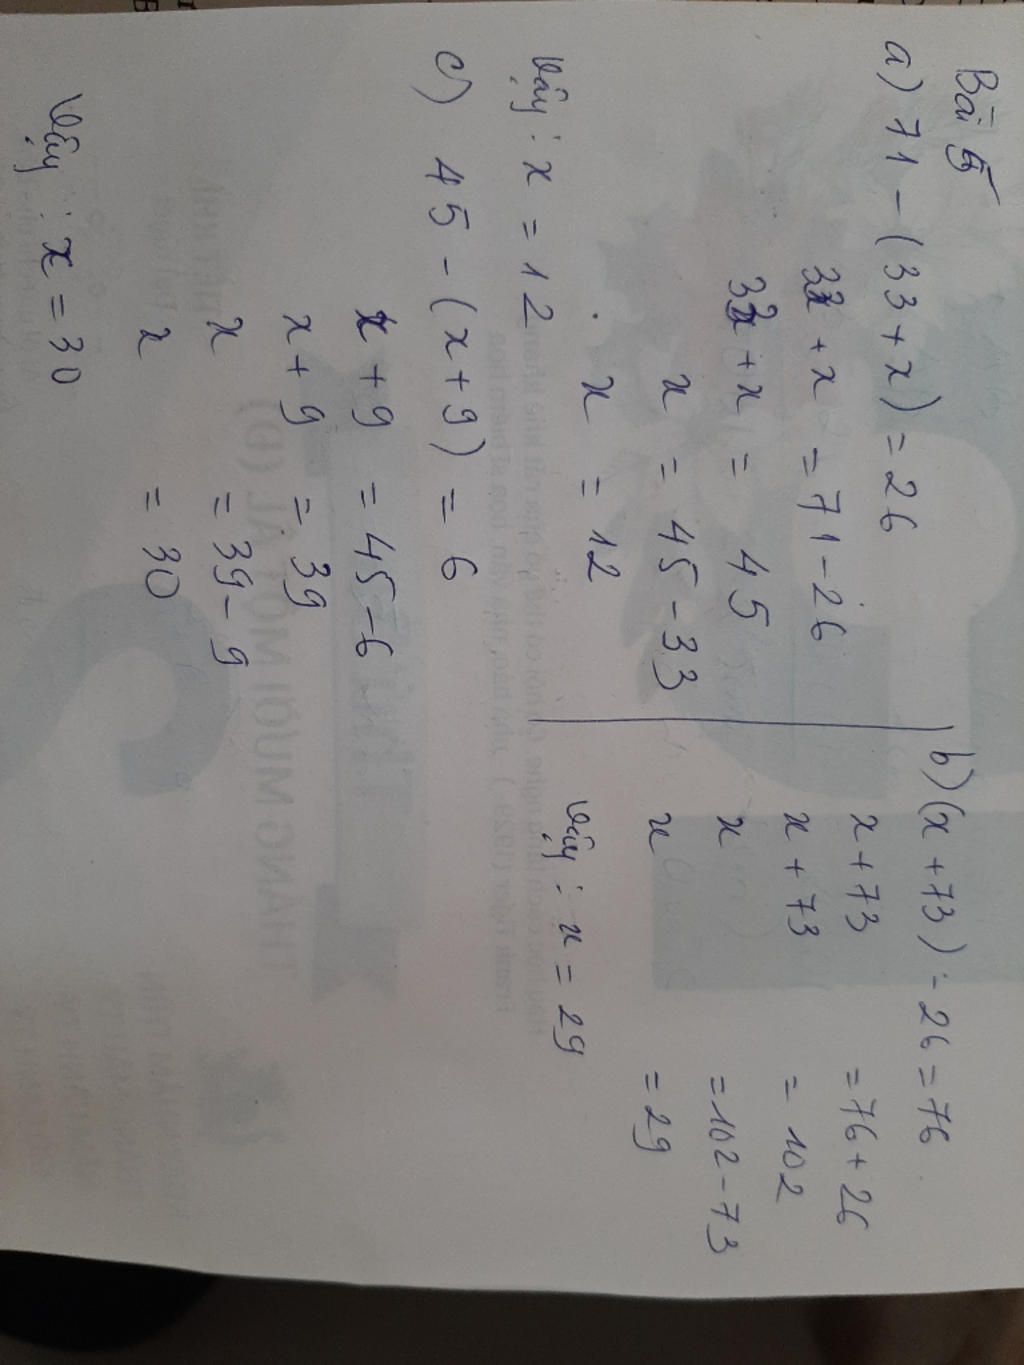 Bài 5
a) 71 - (33 + x) = 26
33 + x = 71 - 26
33 + x = 45
x = 45 - 33
x = 12
Vậy : x = 12
b) (x + 73) - 26 = 76
x + 73 = 76 + 26
x + 73 = 102
x = 102 - 73
x = 29
Vậy : x = 29
c) 45 - (x + 9) = 6
x + 9 = 45 - 6
x + 9 = 39
x = 39 - 9
x = 30
Vậy : x = 30